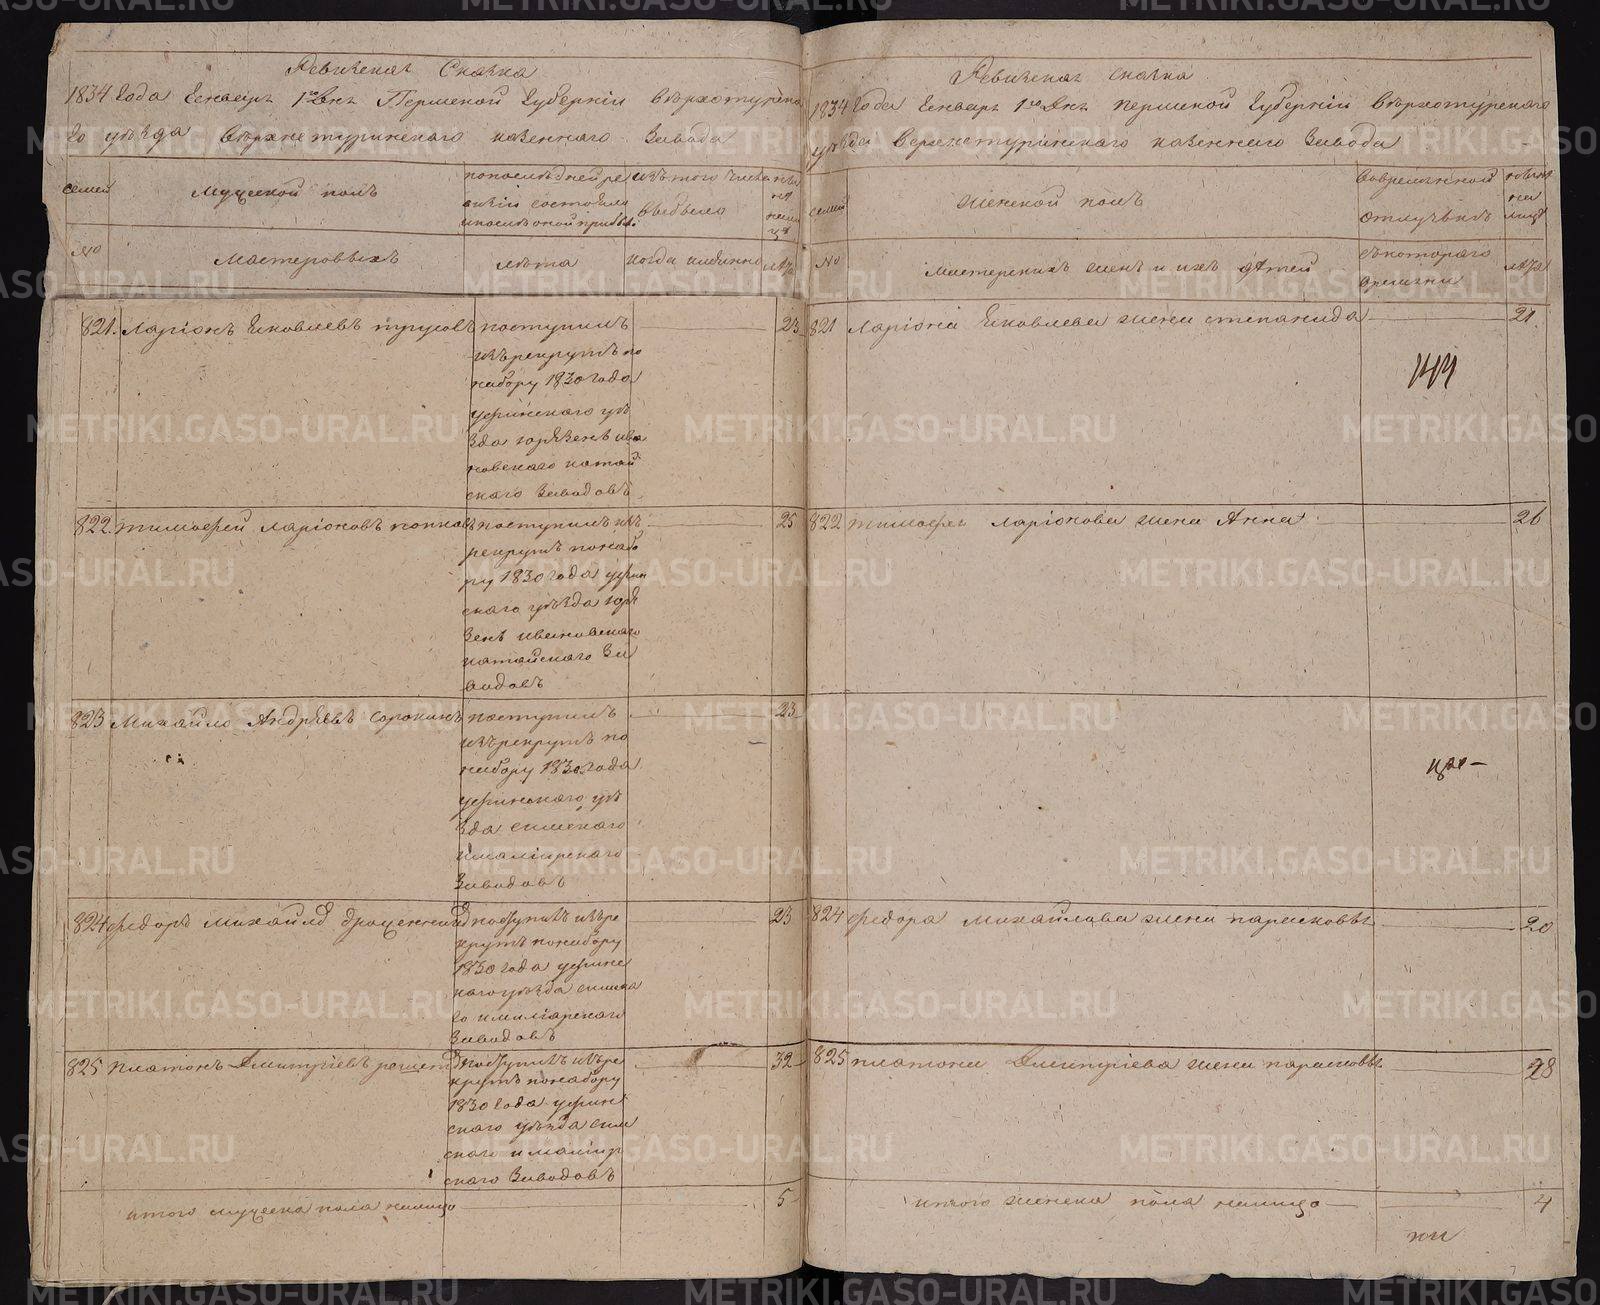 Ревизская Сказка
1834 Года Генваря 1го дня Пермской Губернии Верхотурска
го уезда Верхнетуринского казенного Завода
семей
Мужеской полъ
по последней ре
визіи состояли
и после оной прибы.
изъ того числа
выбыло
ны
не
на
лицо
№
Мастеровыхъ
лета
когда имянно
лета
821. Ларіонъ Яковлевъ трусовъ
поступилъ
изъ рекрутъ по
набору 1830 года
уфинского уе
зда юрезень ива
новского катай
ского Заводовъ
23
822. тимофей Ларіоновъ попковъ
поступилъ изъ
рекрутъ по набо
ру 1830 года уфин
ского уезда юре
зень ивановского
катайского За
водовъ
25
823 Михайло Андреевъ сорокинъ
поступилъ
изъ рекрутъ по
набору 1830 года
уфинского уе
зда симского
и маліярского
Заводовъ
23
824 федоръ Михайлов
поступилъ изъ ре
крутъ по набору
1830 года уфинс
кого уезда симска
го и миліярского
Заводовъ
23
825 платонъ Дмитріевъ
поступилъ изъ ре
крутъ по набору
1830 года уфин
ского уезда сим
ского и маліяр
ского Заводовъ
32
итого мужеска пола налицо
5
Ревизская сказка
1834 Года Генваря 1го дня пермской Губерніи верхотурского
уезда верхнетуринского казенного Завода
семей
Женской полъ
Вовременной
отлучкъ
ныне
на
лицо
№
Мастерскихъ женъ и ихъ детей
съ котораго
времени
лета
821 Ларіона Яковлева жена степанида
21.
822 тимофея Ларіонова жена Анна
26
824 федора Михайлова жена парасковья
20
825 платона Дмитріева жена парасковья
28
итого женска пола налицо
4